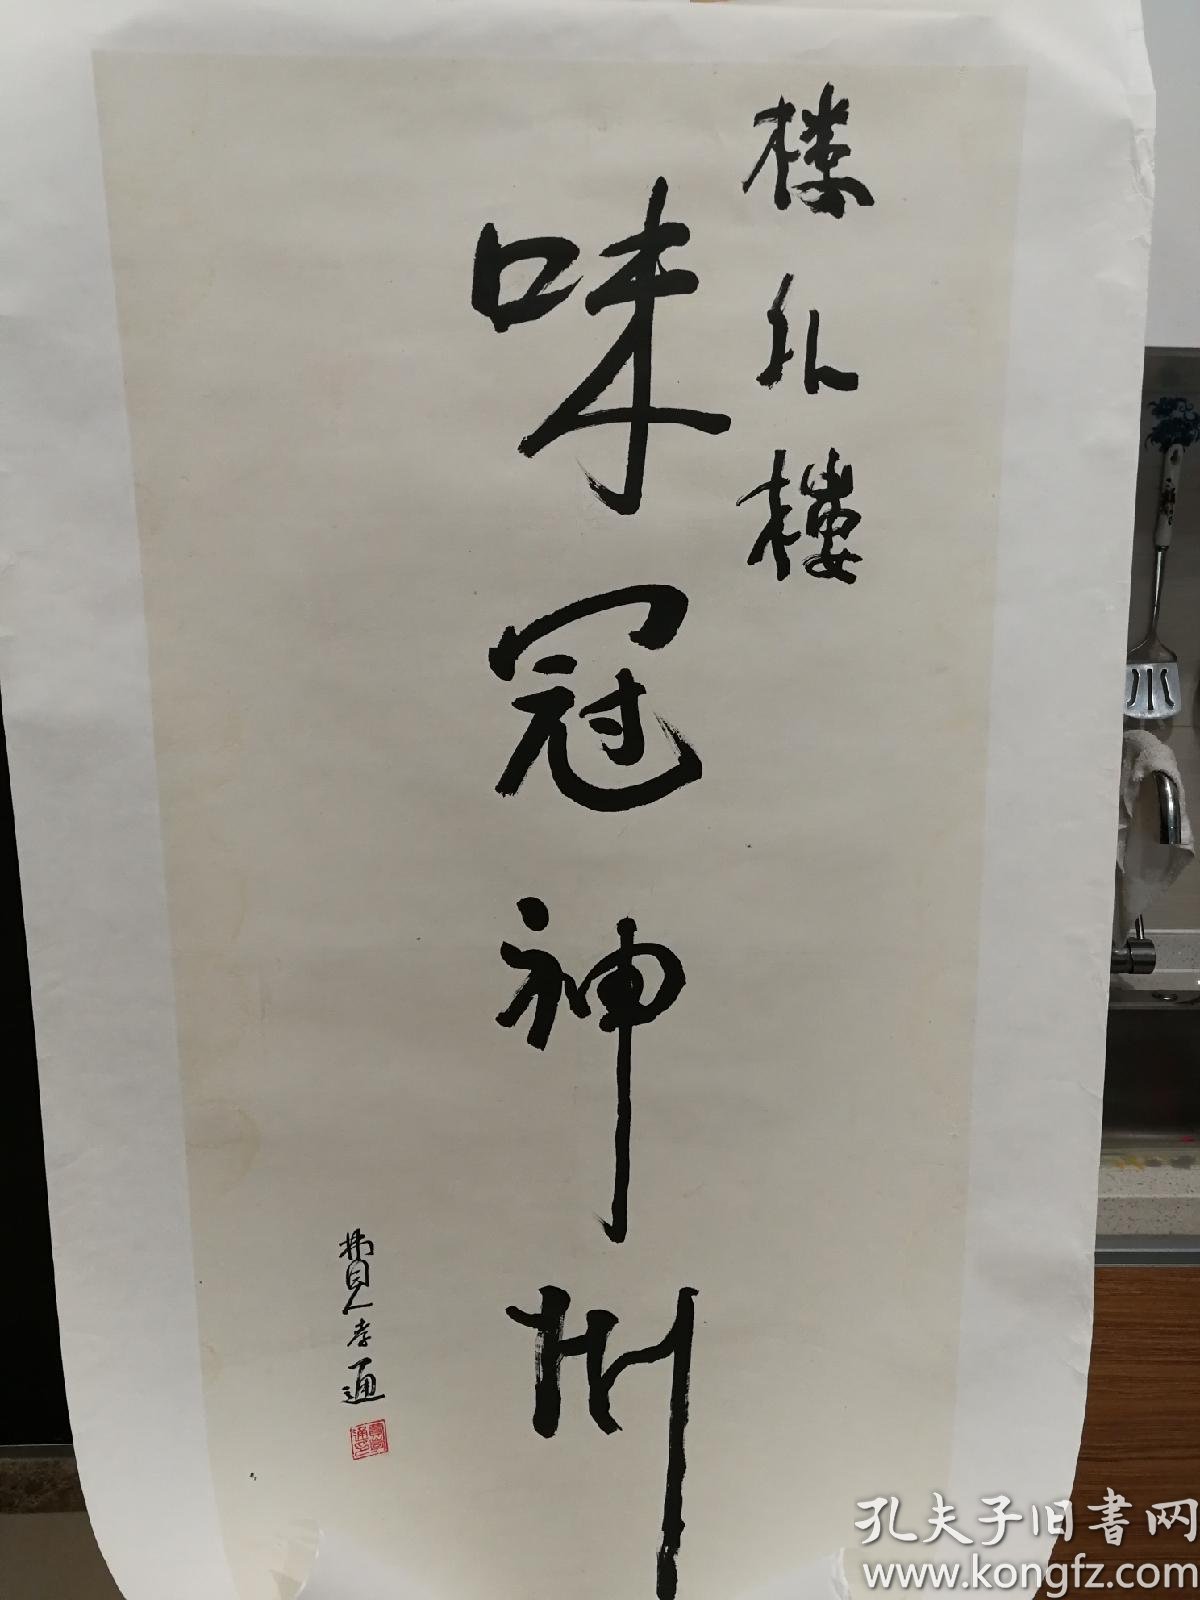 楼外樓
味冠神州
費孝通
孔夫子旧书网
www.kongfz.com